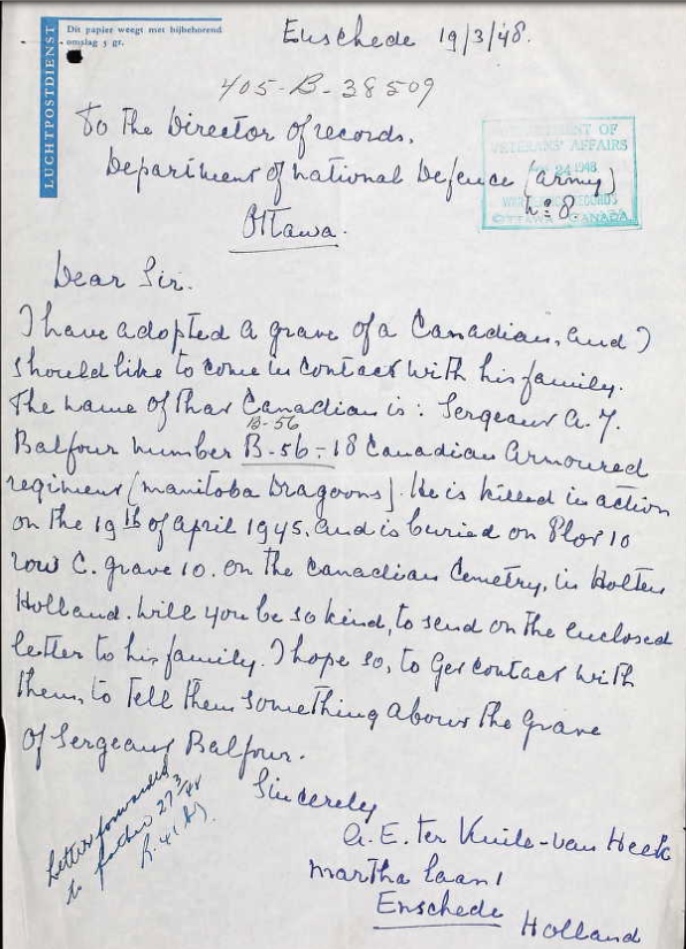 LUCHTPOSTDIENST
Dit papier weegt met bijbehorend
omslag 5 gr.
Enschede 19/3/48.
405-B-38509
To the Director of records.
Department of national Defence (army)
DEPARTMENT OF
VETERANS' AFFAIRS
24 1948
WAR SERVICE RECORDS
OTTAWA CANADA
No 8.
Ottawa.
Dear Sir.
I have adopted a grave of a Canadian, and I
should like to come in contact with his family.
The name of that Canadian is: Sergeant a. J.
B-56
Balfour number B-56-:18 Canadian Armoured
regiment (manitoba Dragoons). He is killed in action
on the 19th of april 1945. and is buried on Plot 10
row C. grave 10. on the Canadian Cemetry, in Holten
Holland. Will you be so kind, to send on the enclosed
letter to his family. I hope so, to get contact with
them, to tell them something about the grave
of Sergeant Balfour.
Sincerely
a. E. ter Kuile-van Heek
Martha laan 1
Enschede Holland
Letter forwarded
to father 27/3/48